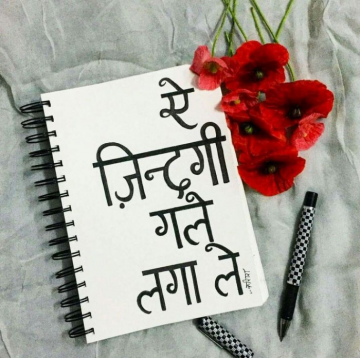 ऐ
ज़िन्दगी
गले
लगा ले